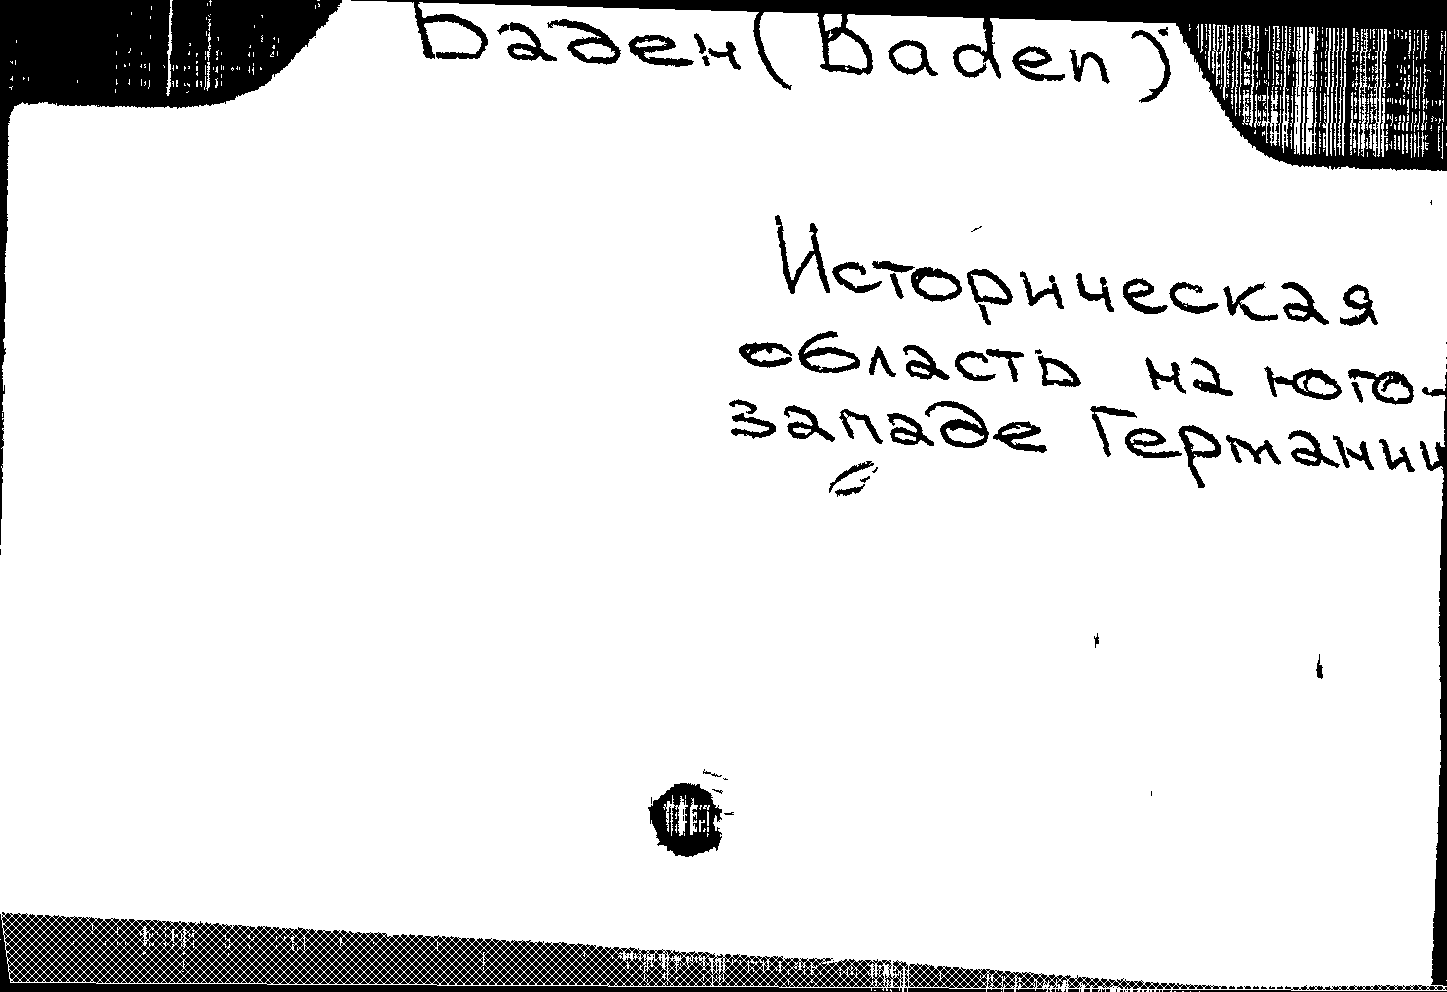 Баден (Baden)
Историческая
область на юго-
западе Германии